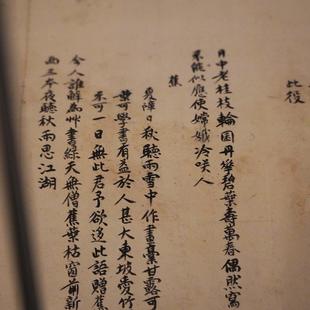 此役
月中老桂枝輪囷丹萼碧葉壽萬春偶然寫
不能似應使嫦娥冷咲人
蕉
夏障日秋聽雨雪中作畫藁甘露可
學書有益於人甚大東坡愛竹
不可一日無此君予欲迻此語贈蕉
今人誰解為艸書綠天無僧蕉葉枯窗前新
雨三本夜聽秋雨思江湖